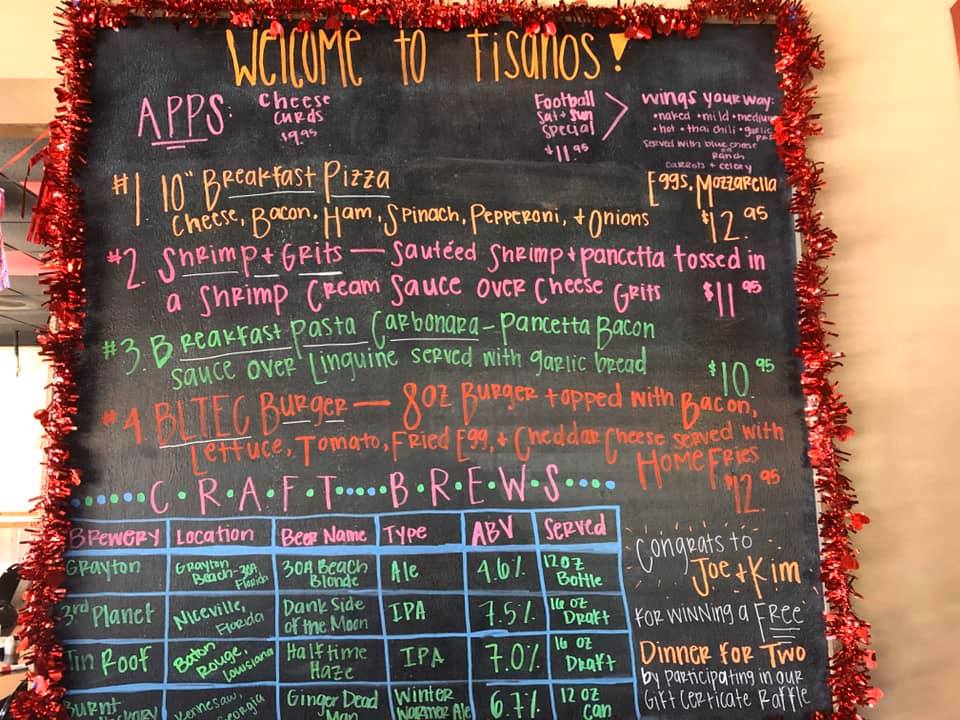 Welcome to Tisanos!
APPS: Cheese Curds $9.95
Football Sat + Sun Special $11.95
Wings your way:
• naked • mild • medium
• hot • thai chili • garlic
served with blue cheese
or
Ranch
carrots + celery
#1. 10" Breakfast Pizza Eggs, Mozzarella
Cheese, Bacon, Ham, Spinach, Pepperoni, + Onions $12.95
#2. Shrimp + Grits — Sautéed Shrimp + pancetta tossed in
a Shrimp Cream Sauce over Cheese Grits $11.95
#3. Breakfast Pasta Carbonara - Pancetta Bacon
sauce over Linguine served with garlic bread $10.95
#4. BLTEC Burger — 8oz Burger topped with Bacon,
Lettuce, Tomato, Fried Egg, + Cheddar Cheese served with
Home Fries
$12.95
C•R•A•F•T B•R•E•W•S
Brewery Location Beer Name Type ABV Served
Grayton Grayton Beach - 30A, Florida 30A Beach Blonde Ale 4.6% 12oz Bottle
3rd Planet Niceville, Florida Dank Side of the Moon IPA 7.5% 16 oz Draft
Tin Roof Baton Rouge, Louisiana Halftime Haze IPA 7.0% 16 oz Draft
Burnt Kennesaw, Georgia Ginger Dead Man Winter Warmer Ale 6.7% 12 oz Can
Congrats to
Joe + Kim
for winning a Free
Dinner for Two
by participating in our
Gift Certicate Raffle